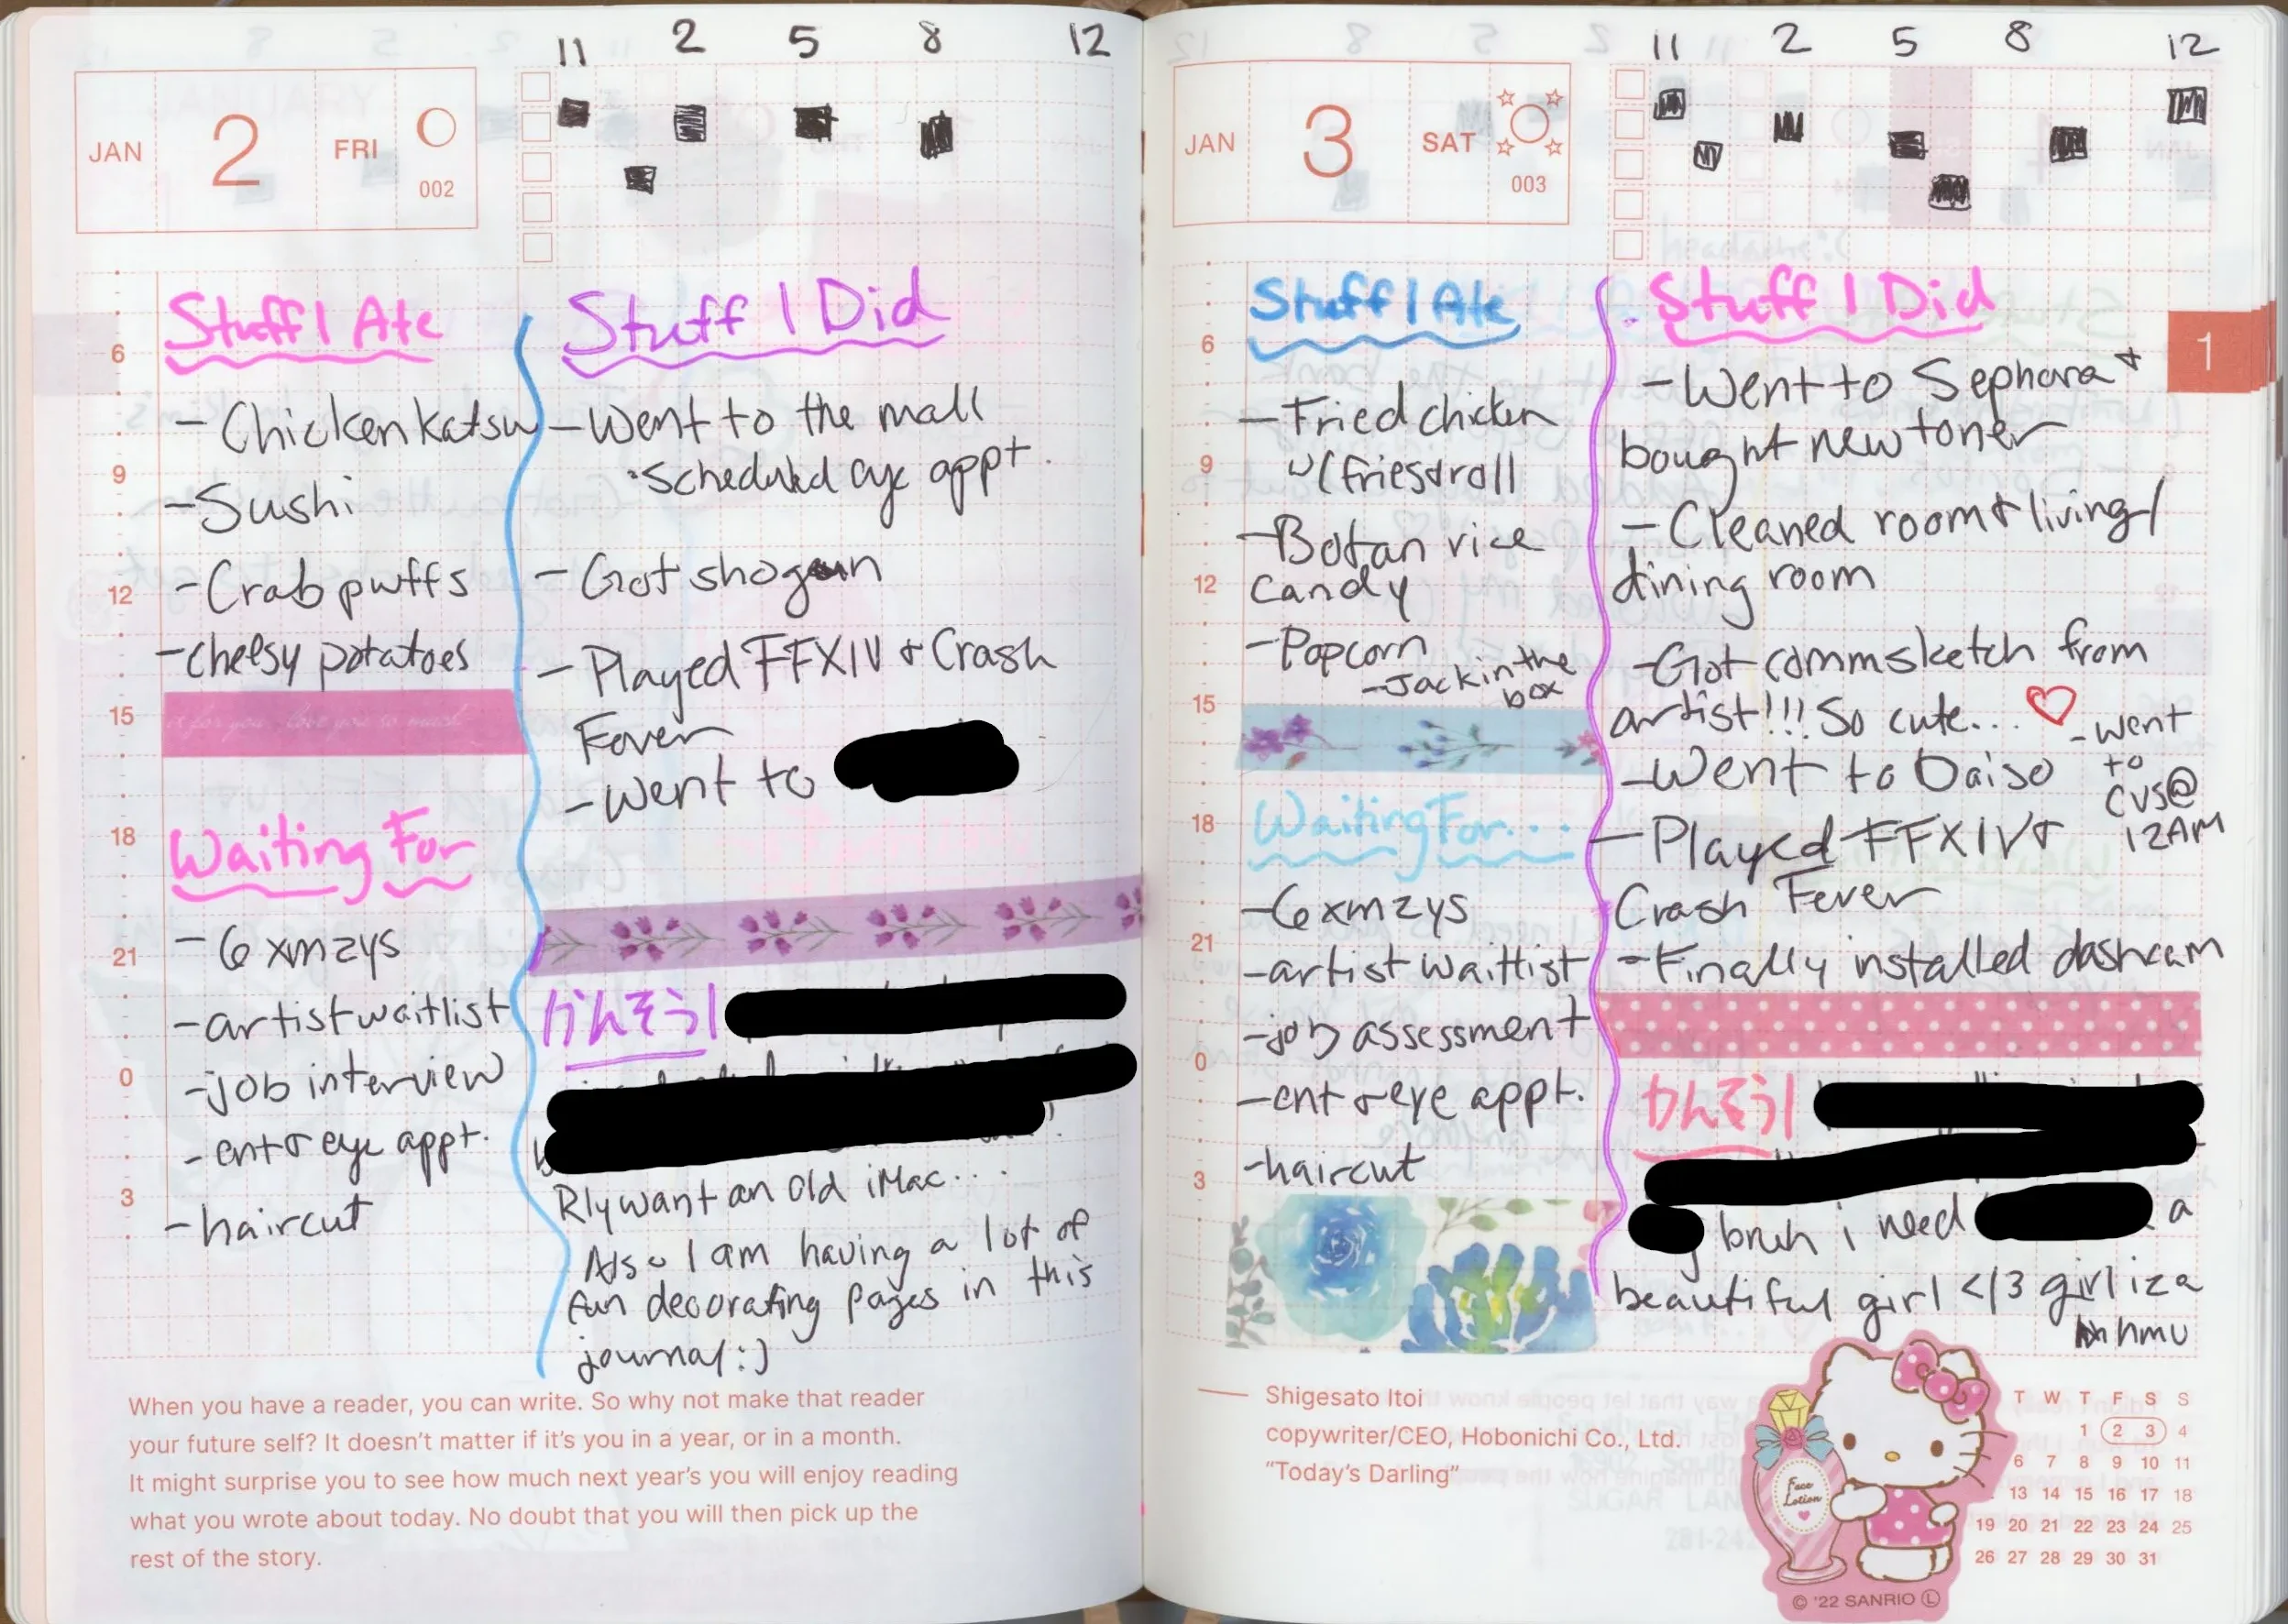 11 2 5 8 12
JAN 2 FRI
002
Stuff I Ate
- Chicken katsu
- Sushi
- Crab puffs
- cheesy potatoes
Waiting For
- 6 xmzys
- artist waitlist
- job interview
- ent & eye appt.
- haircut
6
9
12
15
18
21
0
3
Stuff I Did
- Went to the mall
· Scheduled eye appt.
- Got shogun
- Played FFXIV & Crash
Fever
- Went to
かんそう
Rly want an old iMac...
Also I am having a lot of
fun decorating pages in this
journal :)
When you have a reader, you can write. So why not make that reader
your future self? It doesn't matter if it's you in a year, or in a month.
It might surprise you to see how much next year's you will enjoy reading
what you wrote about today. No doubt that you will then pick up the
rest of the story.
11 2 5 8 12
JAN 3 SAT
003
Stuff I Ate
- Fried chicken
w/ fries & roll
- Botan rice
Candy
- Popcorn
- Jack in the
box
Waiting For...
- 6 xmzys
- artist waitlist
- job assessment
- ent & eye appt.
- haircut
6
9
12
15
18
21
0
3
Stuff I Did
- Went to Sephora &
bought new toner
- Cleaned room & living/
dining room
- Got comm sketch from
artist!!! So cute...
- Went to Daiso
- Went
to
CVS @
12AM
- Played FFXIV &
Crash Fever
- Finally installed dashcam
かんそう
bruh i need a
beautiful girl </3 girl iza
hmu
1
Shigesato Itoi
copywriter/CEO, Hobonichi Co., Ltd.
"Today's Darling"
Face
Lotion
© '22 SANRIO Ⓛ
T W T F S S
1 2 3 4
6 7 8 9 10 11
13 14 15 16 17 18
19 20 21 22 23 24 25
26 27 28 29 30 31